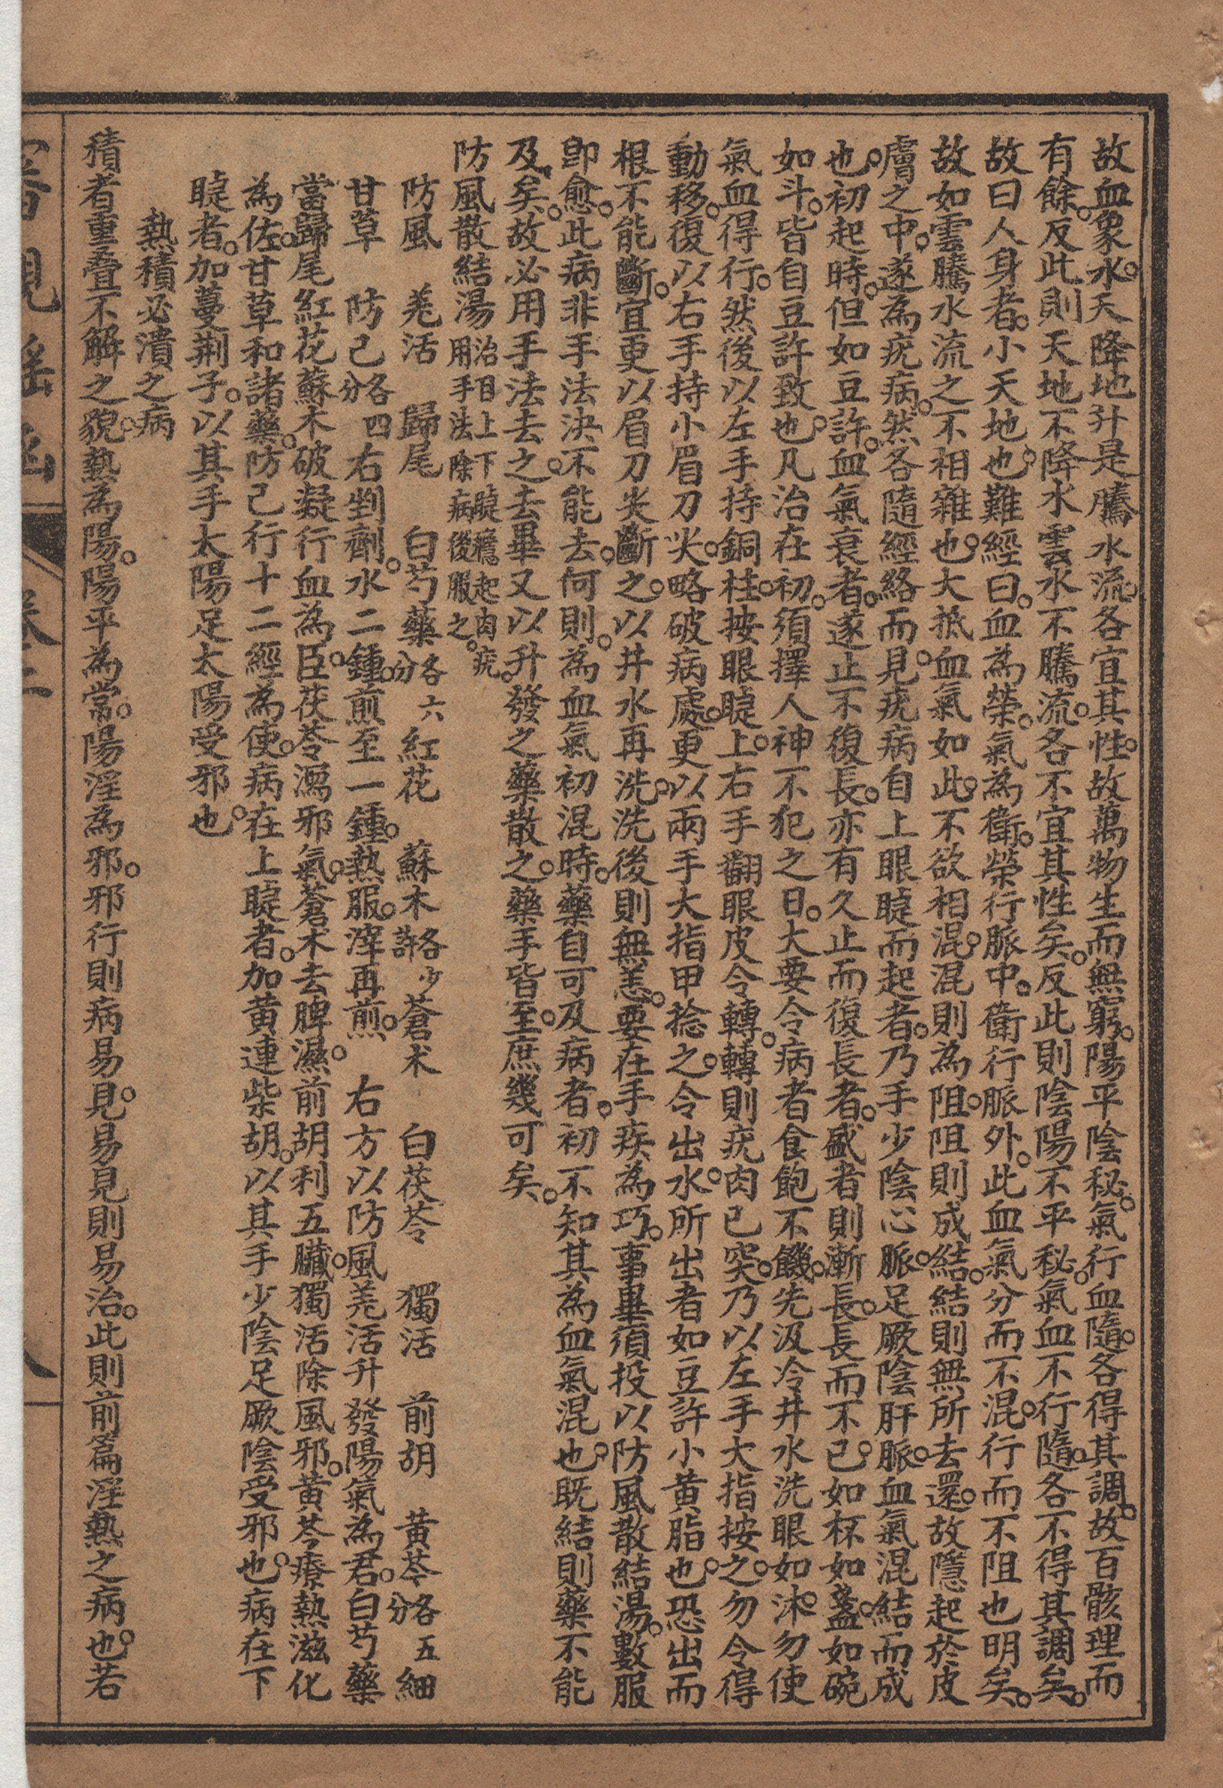 故血象水。天降地升。是騰水流。各宜其性。故萬物生而無窮。陽平陰秘。氣行血隨。各得其調。故百骸理而
有餘。反此則天地不降。水雲水不騰流。各不宜其性矣。反此則陰陽不平秘。氣血不行隨。各不得其調矣。
故曰人身者。小天地也。難經曰。血為榮。氣為衛。榮行脈中。衛行脈外。此血氣分而不混。行而不阻也明矣。
故如雲騰水流之不相雜也。大抵血氣如此。不欲相混。混則為阻。阻則成結。結則無所去還。故隱起於皮
膚之中。遂為疣病。然各隨經絡而見。疣病自上眼睫而起者。乃手少陰心脈。足厥陰肝脈。血氣混結而成
也。初起時。但如豆許。血氣衰者。遂止不復長。亦有久止而復長者。盛者則漸長。長而不已。如杯如盞。如碗
如斗。皆自豆許致也。凡治在初。須擇人神不犯之日。大要令病者食飽不饑。先汲冷井水洗眼如沐。勿使
氣血得行。然後以左手持銅柱。按眼睫上。右手翻眼皮令轉。轉則疣肉已突。乃以左手大指按之。勿令得
動移。復以右手持小眉刀尖。略破病處。更以兩手大指甲捻之。令出水。所出者如豆許小黄脂也。恐出而
根不能斷。宜更以眉刀尖斷之。以井水再洗。洗後則無恙。要在手疾為巧。事畢須投以防風散結湯。數服
卽愈。此病非手法決不能去。何則。為血氣初混時。藥自可及。病者初不知其為血氣混也。既結則藥不能
及矣。故必用手法去之。去畢又以升發之藥散之。藥手皆至。庶幾可矣。
防風散結湯治目上下睫癮起肉疣。用手法除病後服之。
防風　羌活　歸尾　白芍藥各六分　紅花　蘇木各少許　蒼朮　白茯苓　獨活　前胡　黄芩各五分　細
甘草　防己各四分　右剉劑。水二鍾。煎至一鍾。熱服。滓再煎。　右方以防風羌活升發陽氣為君。白芍藥
當歸尾紅花蘇木破凝行血為臣。茯苓瀉邪氣。蒼朮去脾濕。前胡利五臟。獨活除風邪。黄芩療熱滋化
為佐。甘草和諸藥。防己行十二經為使。病在上睫者。加黄連柴胡。以其手少陰足厥陰受邪也。病在下
睫者。加蔓荆子。以其手太陽足太陽受邪也。
熱積必潰之病
積者重疊不解之貌。熱為陽。陽平為常。陽淫為邪。邪行則病易見。易見則易治。此則前篇淫熱之病也。若